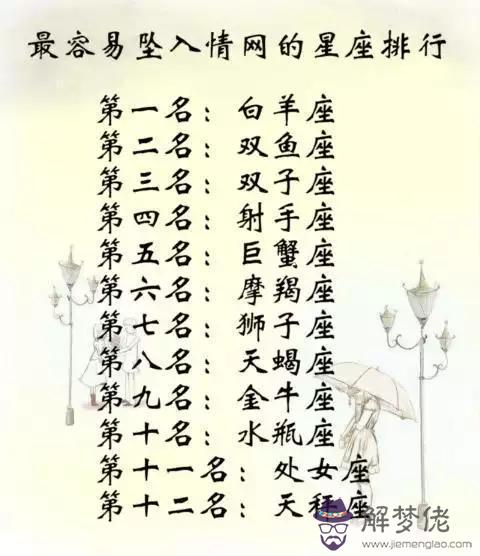 最容易坠入情网的星座排行
第一名：白羊座
第二名：双鱼座
第三名：双子座
第四名：射手座
第五名：巨蟹座
第六名：摩羯座
第七名：狮子座
第八名：天蝎座
第九名：金牛座
第十名：水瓶座
第十一名：处女座
第十二名：天秤座
解梦佬
www.jiemenglao.com